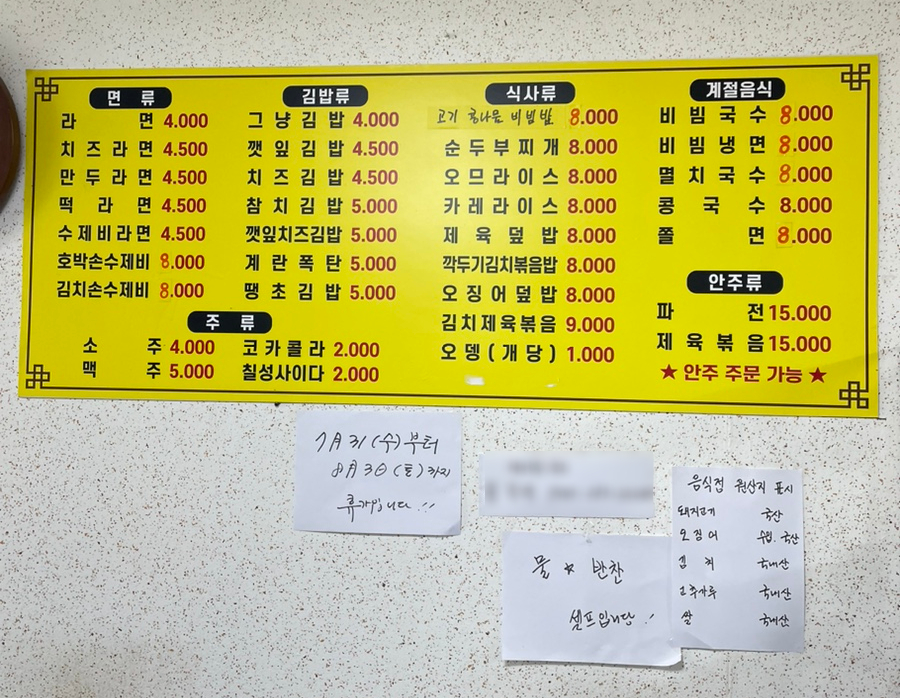 면 류
라 면 4.000
치즈라면 4.500
만두라면 4.500
떡 라 면 4.500
수제비라면 4.500
호박손수제비 8.000
김치손수제비 8.000
김밥류
그냥김밥 4.000
깻잎김밥 4.500
치즈김밥 4.500
참치김밥 5.000
깻잎치즈김밥 5.000
계란폭탄 5.000
땡초김밥 5.000
주 류
소 주 4.000
맥 주 5.000
코카콜라 2.000
칠성사이다 2.000
식사류
고기 콩나물 비빔밥 8.000
순두부찌개 8.000
오므라이스 8.000
카레라이스 8.000
제육덮밥 8.000
깍두기김치볶음밥 8.000
오징어덮밥 8.000
김치제육볶음 9.000
오뎅(개당) 1.000
계절음식
비빔국수 8.000
비빔냉면 8.000
멸치국수 8.000
콩 국 수 8.000
쫄 면 8.000
안주류
파 전 15.000
제육볶음 15.000
★ 안주 주문 가능 ★
7月 31(수)부터
8月 3日(토)까지
휴가입니다 !!
물 ☆ 반찬
셀프입니당 !!
음식점 원산지 표시
돼지고기 국산
오징어 수입. 국산
김치 국내산
고추가루 국내산
쌀 국내산